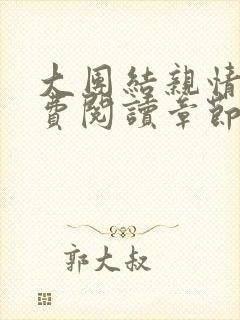 大团結親情
費閱讀章節
郭大叔